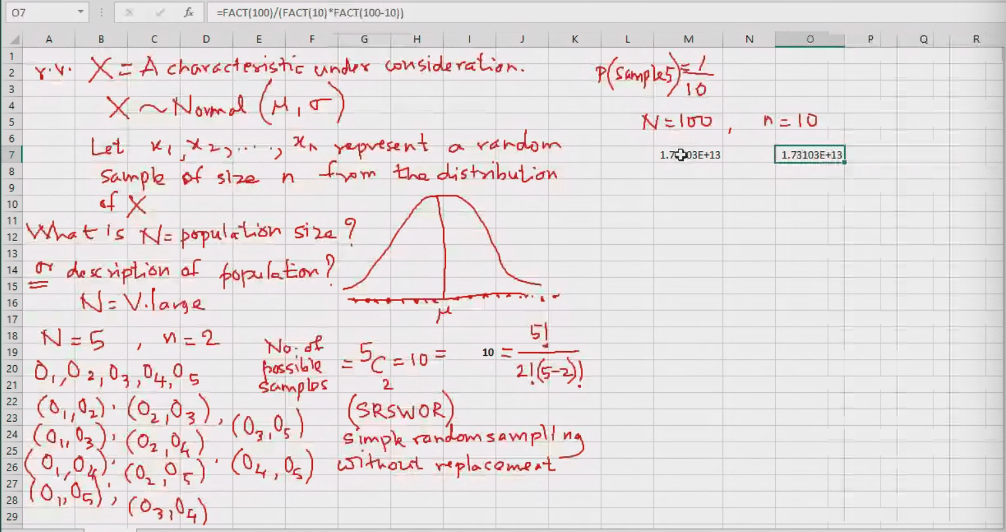 O7 fx =FACT(100)/(FACT(10)*FACT(100-10))
A B C D E F G H I J K L M N O P Q R
1
2
3
4
5
6
7
8
9
10
11
12
13
14
15
16
17
18
19
20
21
22
23
24
25
26
27
28
29
r.v. X = A characteristic under consideration.
X ~ Normal (μ, σ)
Let x1, x2, ...., xn represent a random
sample of size n from the distribution
of X
What is N = population size?
or description of population?
N = V.large
μ
N = 5 , n = 2
O1, O2, O3, O4, O5
(O1, O2), (O2, O3), (O3, O5)
(O1, O3), (O2, O4)
(O1, O4), (O2, O5), (O4, O5)
(O1, O5), (O3, O4)
No. of
possible
samples
= 5C2 = 10 = 10 = 5! / 2!(5-2)!
(SRSWOR)
simple random sampling
without replacement
P(sample 5) = 1/10
N = 100 , n = 10
1.73103E+13